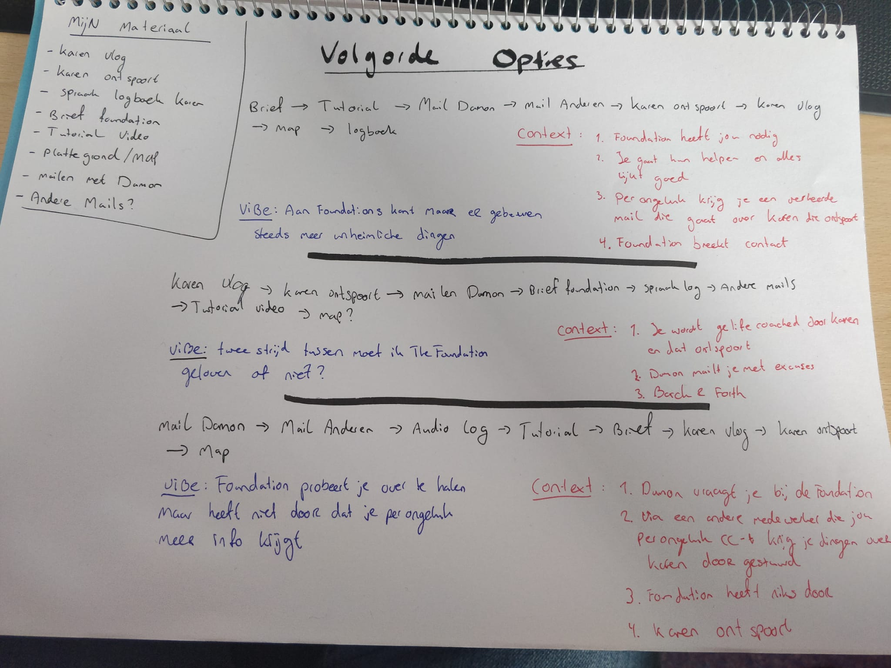 MijN Materiaal
- Karen vlog
- Karen ontspoort
- spraak logboek Karen
- Brief foundation
- Tutorial video
- Plattegrond/map
- mailen met Damon
- Andere Mails?
Volgorde Opties
Brief → Tutorial → Mail Damon → Mail Anderen → Karen ontspoort → Karen vlog
→ Map → logboek
Context: 1. Foundation heeft jou nodig
2. Je gaat hun helpen en alles
lijkt goed
3. Per ongeluk krijg je een verkeerde
mail die gaat over Karen die ontspoort
4. Foundation breekt contact
ViBe: Aan Foundations kant maar er gebeuren
steeds meer unheimliche dingen
Karen vlog → Karen ontspoort → mailen Damon → Brief foundation → spraak log → Andere mails
→ Tutorial video → map?
Context: 1. Je wordt gelifecoached door Karen
en dat ontspoort
2. Damon mailt je met excuses
3. Back & Forth
ViBe: twee strijd tussen moet ik The Foundation
geloven of niet?
Mail Damon → Mail Anderen → Audio log → Tutorial → Brief → Karen vlog → Karen ontspoort
→ Map
ViBe: Foundation probeert je over te halen
maar heeft niet door dat je per ongeluk
meer info krijgt
Context: 1. Damon vraagt je bij de Foundation
2. Via een andere medewerker die jou
per ongeluk CC-t krijg je dingen over
Karen door gestuurd
3. Foundation heeft niks door
4. Karen ontspoort